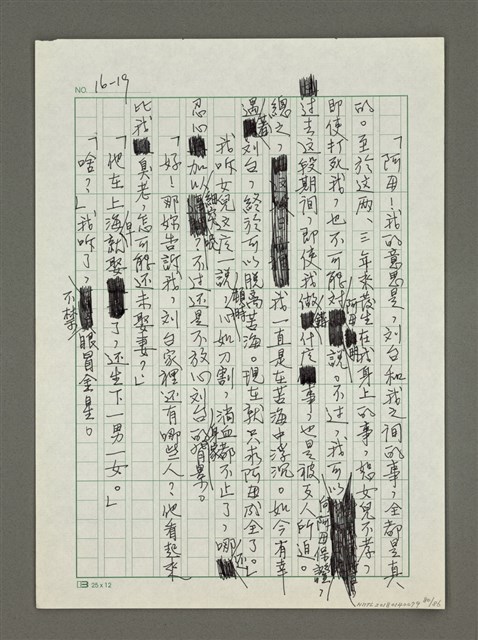 NO. 16-19
「阿母!我的意思是,刘台和我之间的事,全都是真
的。至於这两、三年來发生在我身上的事,恕女兒不孝,
即使打死我,也不可能对阿母說。不过,我可以向阿母保證,
过去这段期间,即使我做錯什庅事,也是被友人所迫。
總之,我一直是在苦海中浮沉。如今有幸
遇着刘台,終於可以脱离苦海。現在就只求阿母成全了。」
我听女兒这庅一說,心如刀割,淌血都不止了,哪还
忍心加以?不过还是不放心刘台的背景。
「好!那妳告訴我,刘台家裡还有哪些人?他看起來
比我臭老,怎可能还未娶妻?」
「他在上海就娶了,还生下一男一女。」
「啥?」我听了,不禁眼冒金星。
25x12